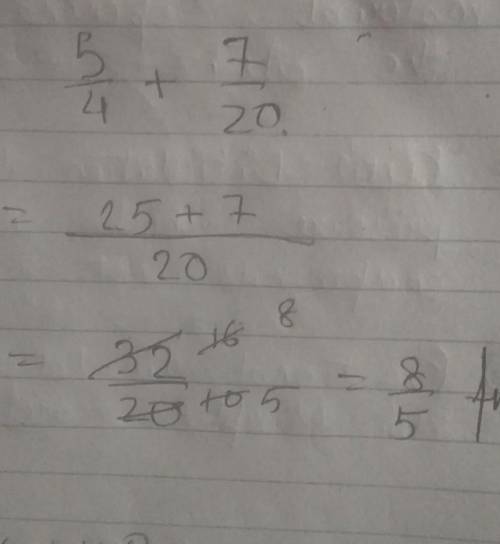 5/4 + 7/20.
= 25 + 7 / 20
= 32 16 8 / 20 10 5 = 8/5